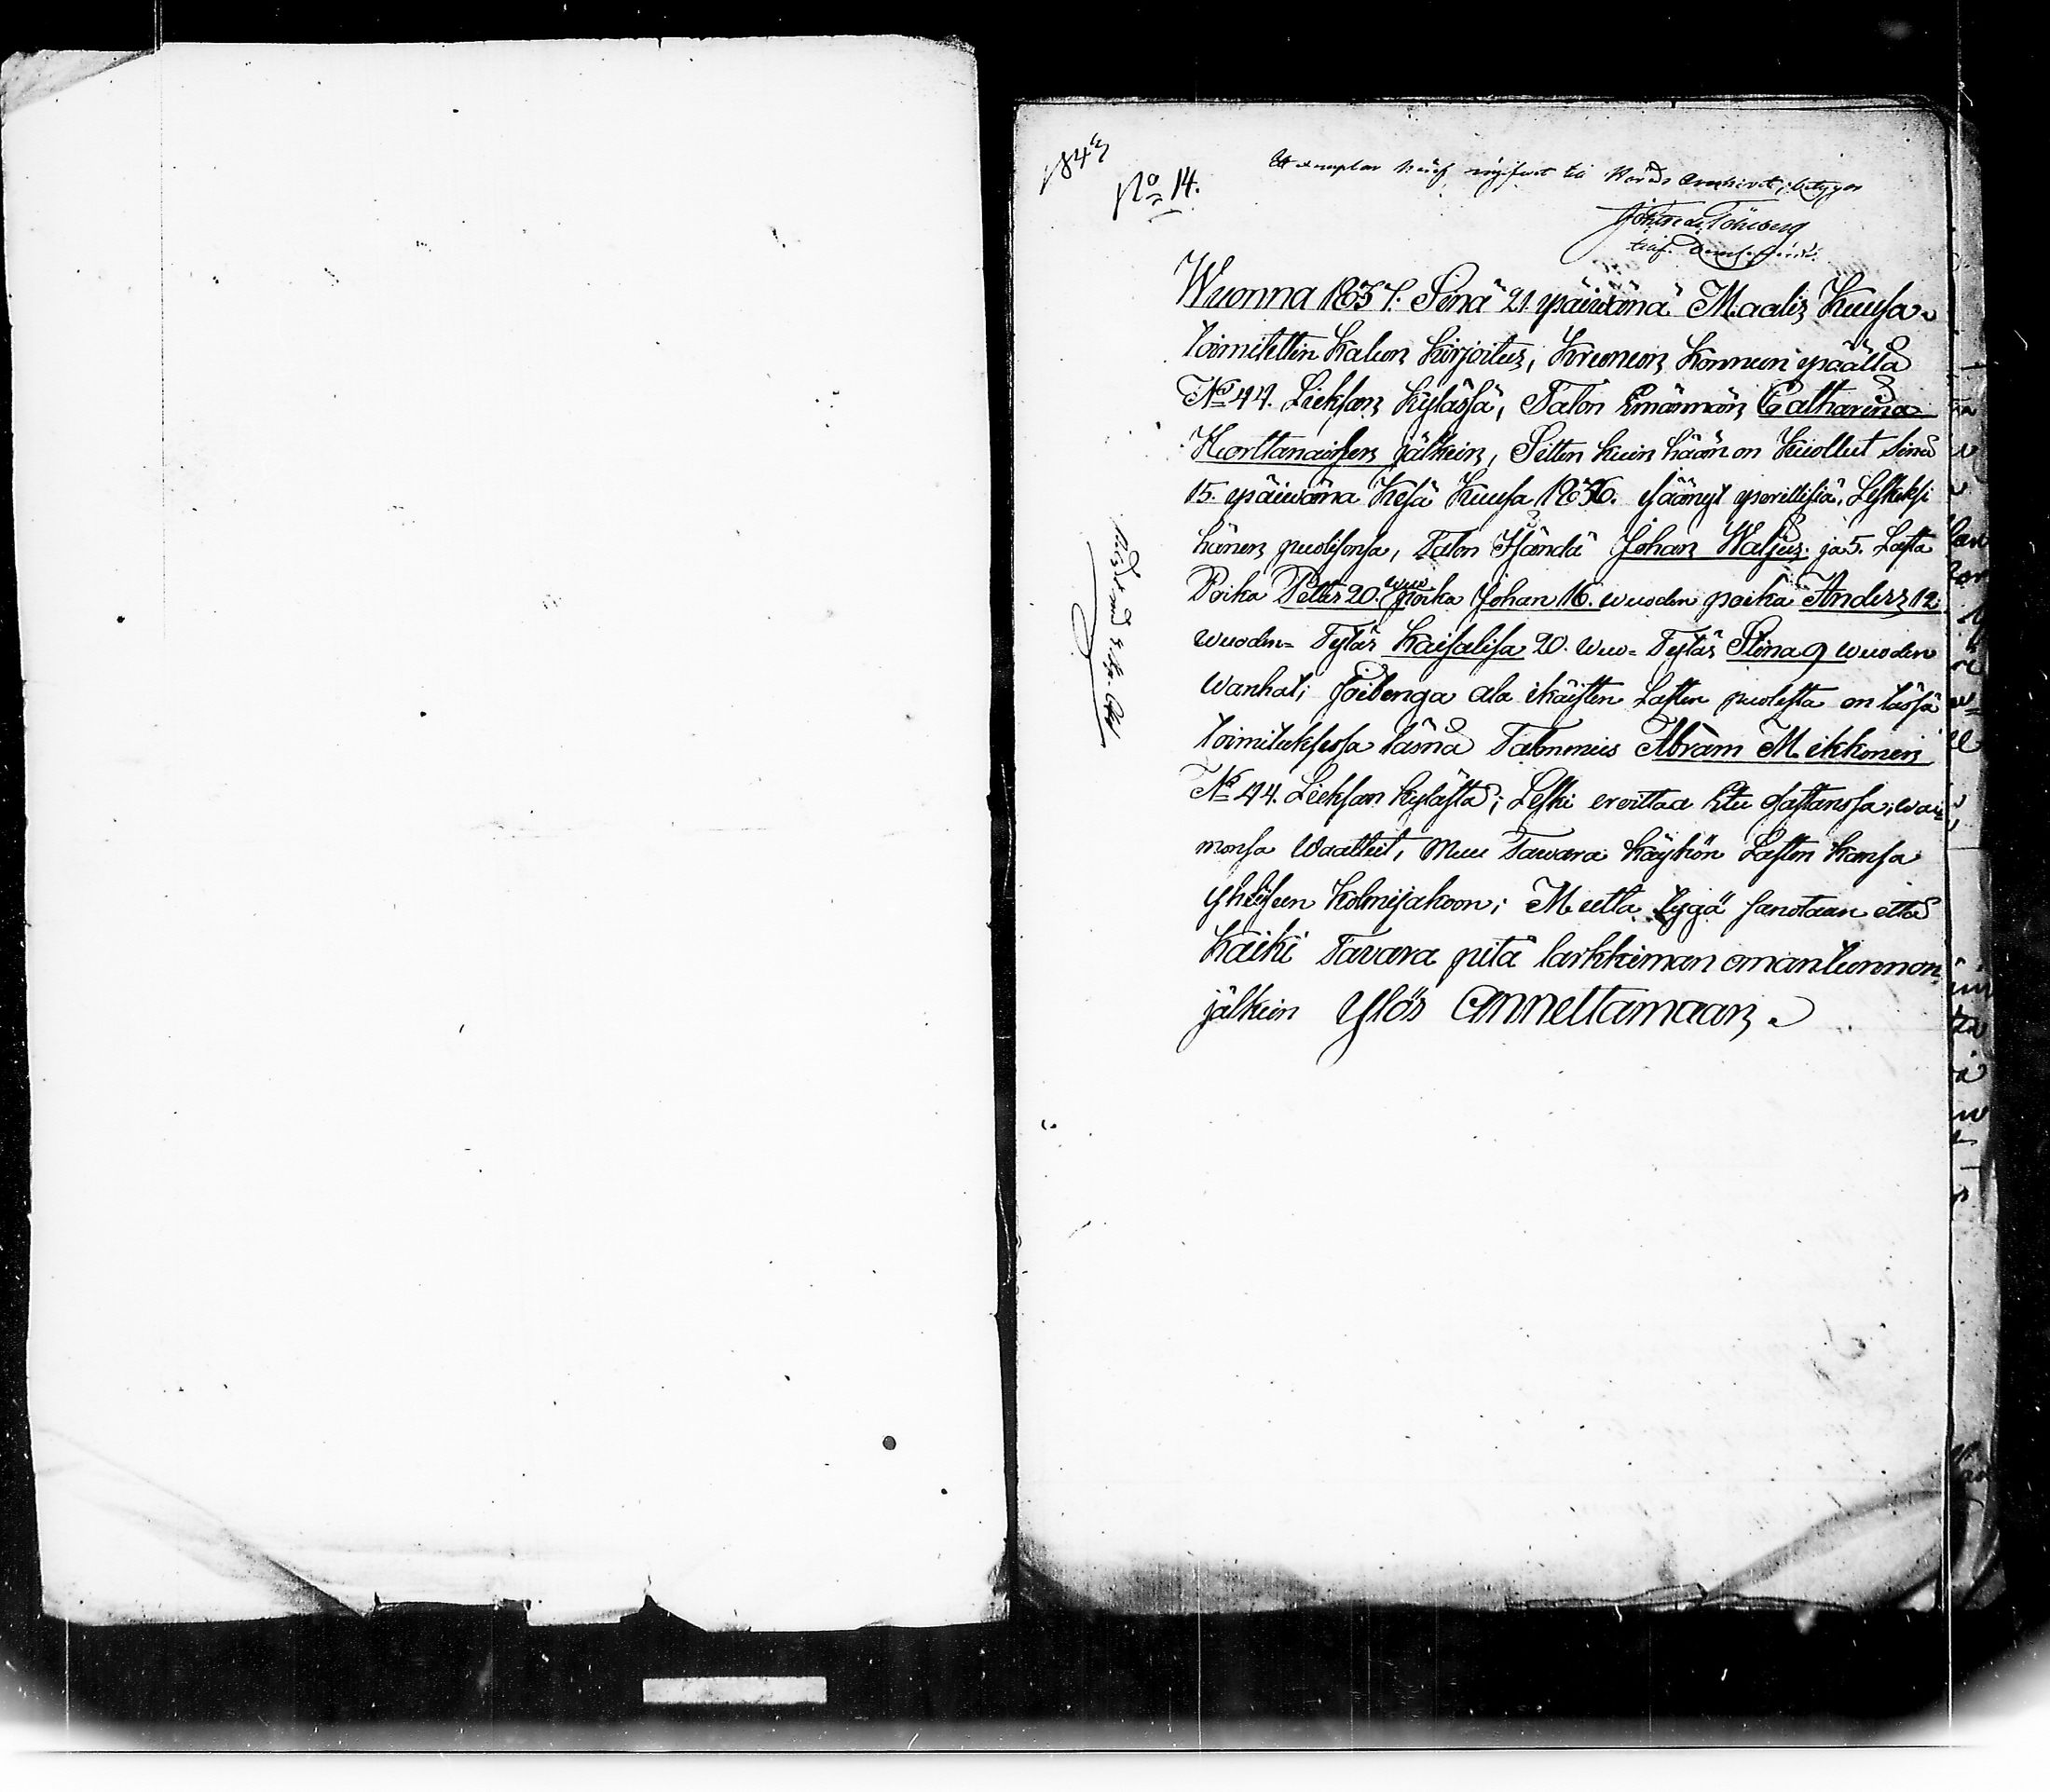 1843
No 14.
Ett exemplar häraf ingifvit till Härads Archivet, betygar
Wuonna 1837. Sinä 21 päiwänä Maalis Kuusa
toimitettin Kalun Kirjoitus, Kruunun Konnun päällä
No 44. Lieksan Kylässä, Talon Emännän Catharina
Korttanaisen jälkein, Sitten kuin hään on Kuollut sinä
15. päiwänä Kesä Kuusa 1836. jäänyt perillisiä, Leskeksi
hänen puolisonsa, Talon Isändä Johan Waljus. ja 5. Lasta
Poika Petter 20. wuo poika Johan 16. wuoden poika Anders 12
wuoden= Tytär Kaisalisa 20. wuo= Tytär Stina 9 wuoden
wanhat; joidenga ala ikäisten Lasten puolesta on täsä
toimituksesa läsnä Talonmies Abram Mikkonen
No 44. Lieksan kylästä; Leski eroittaa Etu osastansa, wai=
monsa Waatteet, muu Tawara käyköön Lasten kansa
yhteiseen Kolmijakoon; Mutta tygö sanotaan että
Kaiki Tavara pitä tarkkiman omantunnon
jälkein Ylös annettamaan.